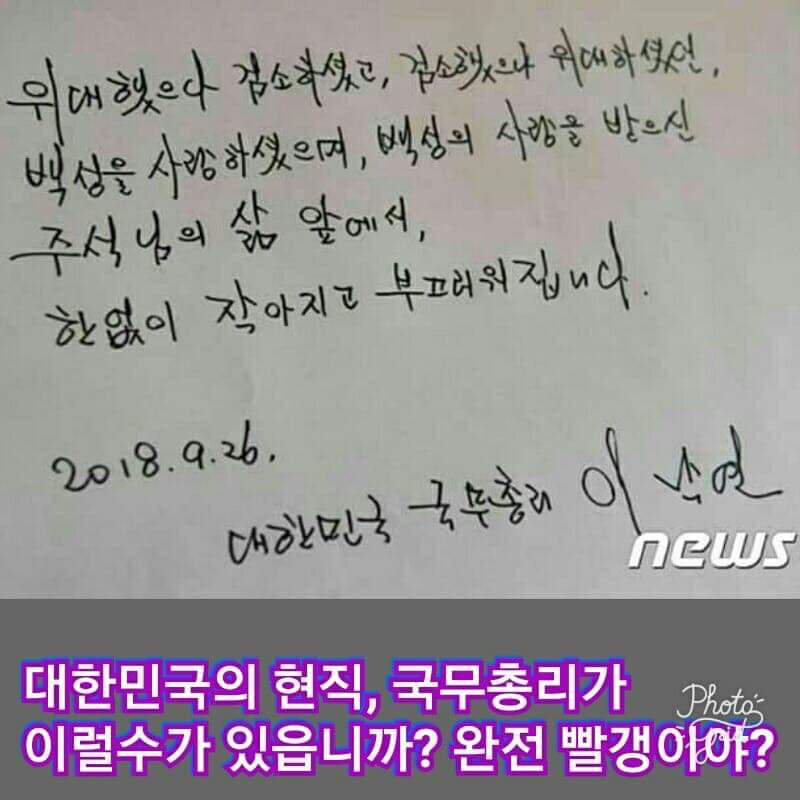 위대했으나 검소하셨고, 검소했으나 위대하셨던,
백성을 사랑하셨으며, 백성의 사랑을 받으신
주석님의 삶 앞에서,
한없이 작아지고 부끄러워집니다.
2018.9.26.
대한민국 국무총리 이낙연
news
대한민국의 현직, 국무총리가
이럴수가 있읍니까? 완전 빨갱이야?
Photo